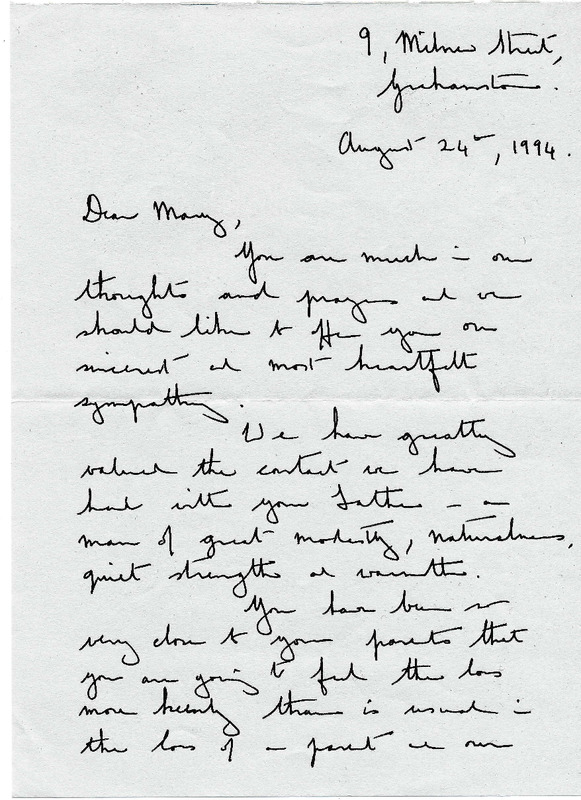 9, Milner Street,
Grahamstown.
August 24th, 1994.
Dear Mary,
You are much in our
thoughts and prayers and we
should like to offer you our
sincerest and most heartfelt
sympathy.
We have greatly
valued the contact we have
had with your Father - a
man of great modesty, naturalness,
quiet strength and warmth.
You have been so
very close to your parents that
you are going to feel the loss
more keenly than is usual in
the loss of a parent and our